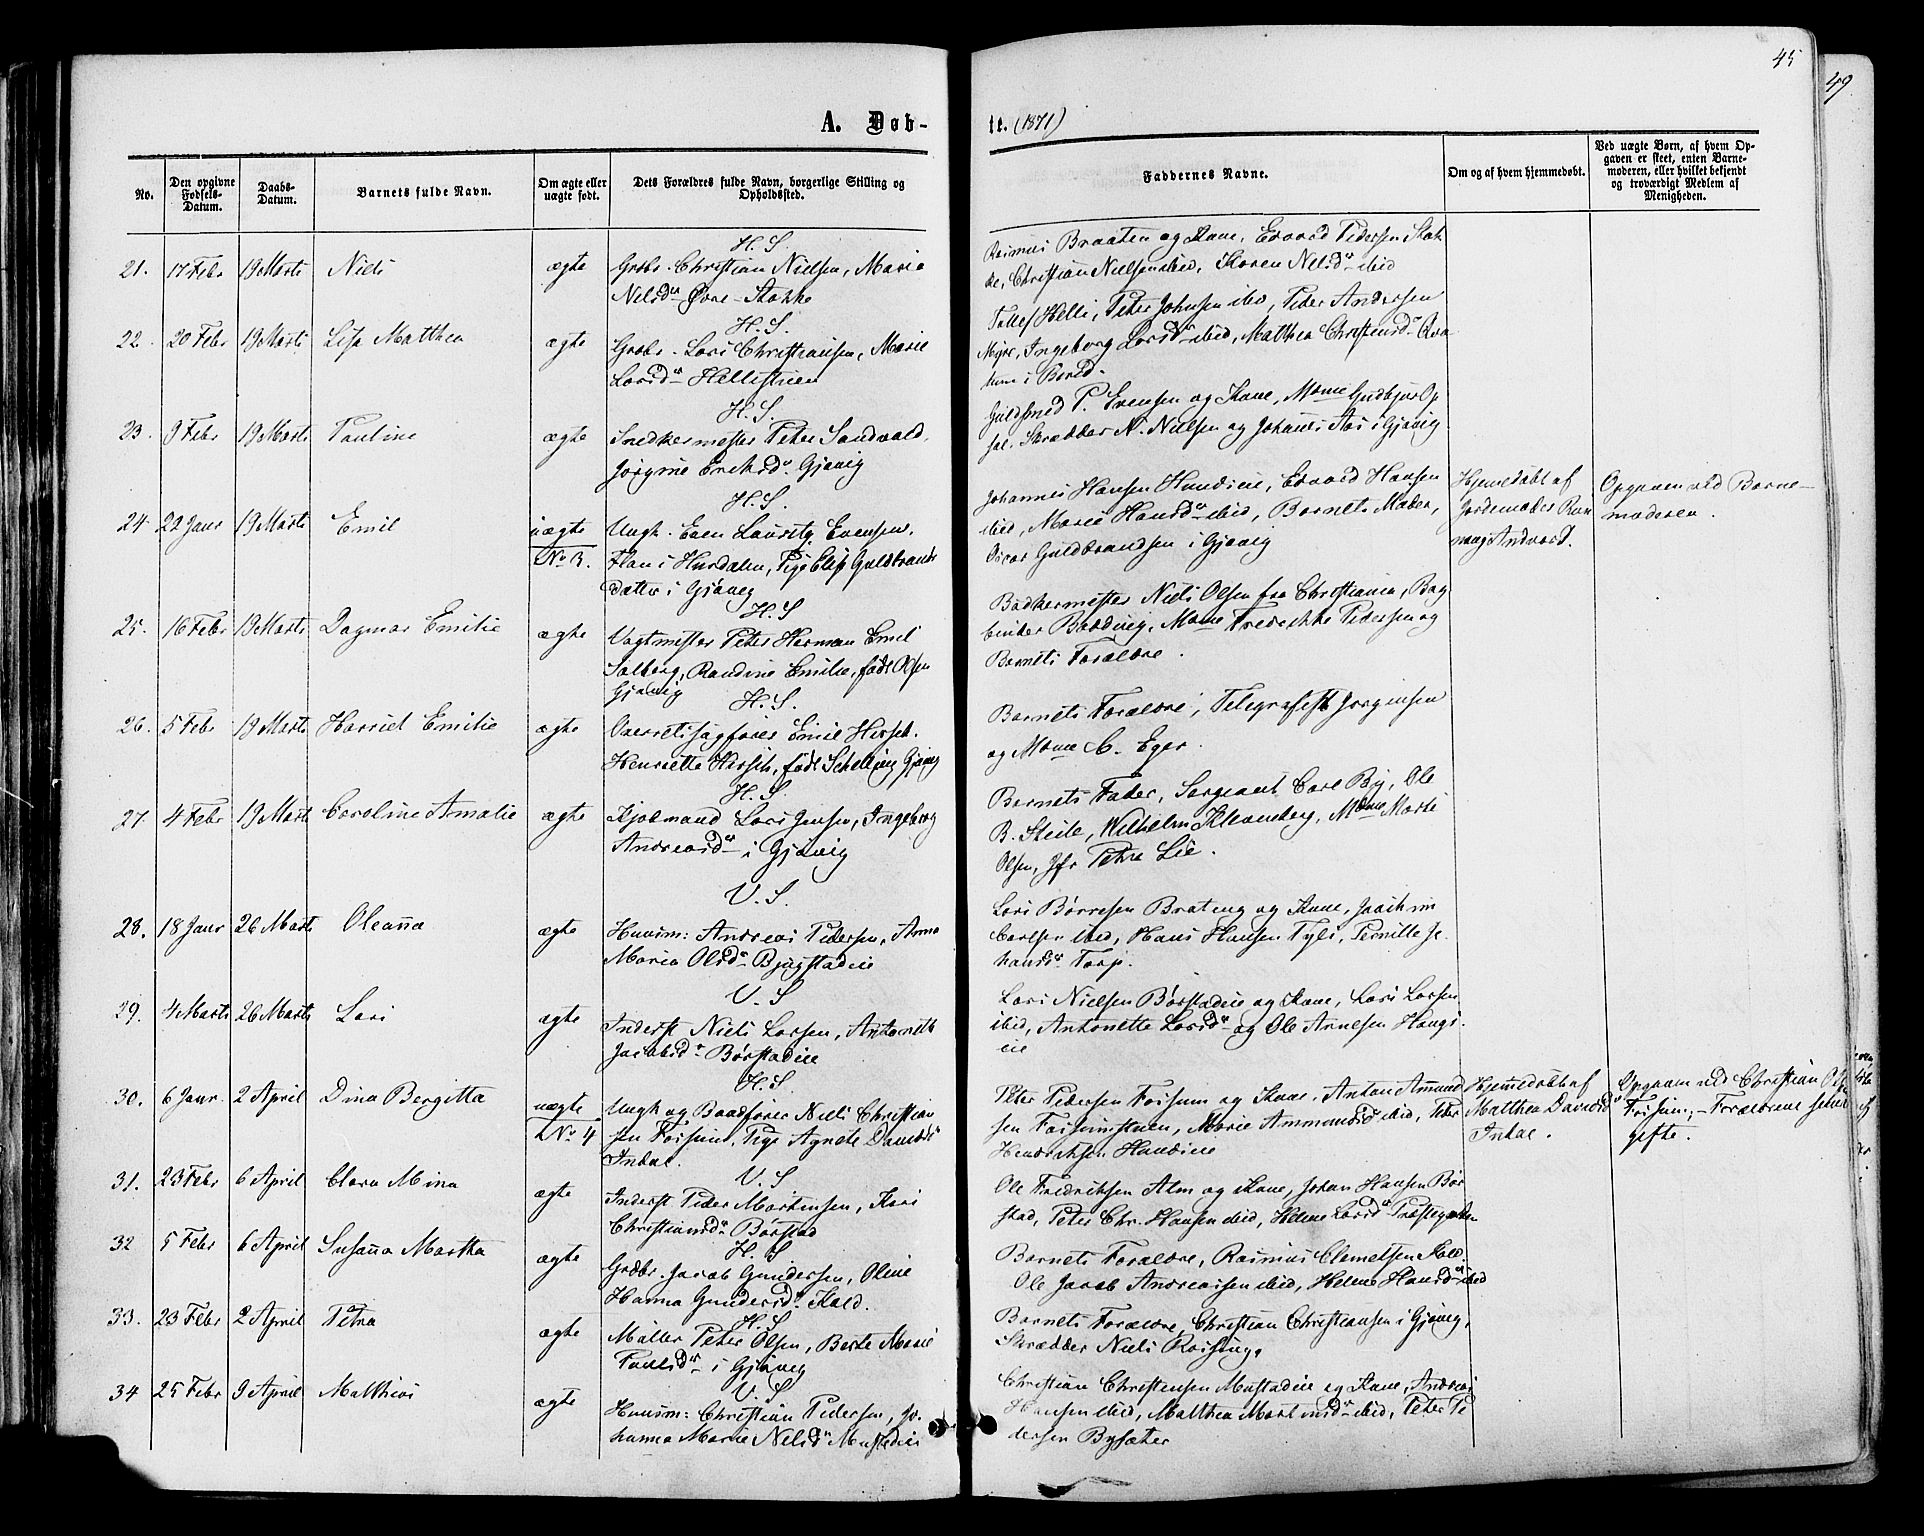 45
49
A. Døb-
te. (1871)
No.
Den opgivne Fødsels-Datum.
Daabs-Datum.
Barnets fulde Navn.
Om ægte eller uægte født.
Dets Forældres fulde Navn, borgerlige Stilling og Opholdssted.
Faddernes Navne.
Om og af hvem hjemmedøbt.
Ved uægte Børn, af hvem Opgaven er skeet, enten Barnemoderen, eller hvilket bekjendt og troværdigt Medlem af Menigheden.
H. S.
21. 17 Febr 19 Marts Niels ægte Grdbr. Christian Nielsen, Marie
Nelsdr Øvre-Stokke
Rasmus Braaten og Kone, Edvard Pedersen Stok
ke, Christian Nielsen ibid, Karen Nelsdr ibid
H. S.
22. 20 Febr 19 Marts Lise Matthea ægte Grdbr. Lars Christiansen, Marie
Larsd Hellistuen
Tollef Helli, Peter Johnsen ibid, Peder Andersen
Myre, Ingeborg Larsdr ibid, Matthea Christensdr
i Biried.
H. S.
23. 9 Febr 19 Marts Pauline ægte Snedkermester Peter Sandvold,
Jørgine Ericksdr Gjøvig
Guldsmed P. Evensen og Kone, Mome Gudbjør Op
sal, Skrædder N. Nielsen og Johannes Aas i Gjøvig
H. S.
24. 22 Janr 19 Marts Emil uægte Ungk. Even Lauritz Evensen,
No 3. Flan i Hurdalen, Pige Elise Guldbrands
datter i Gjøvig
Johannes Hansen Hundeie, Edvard Hansen
ibid, Marie Hansdr ibid, Barnets Moder,
Oscar Guldbrandsen i Gjøvig
Hjemedøbt af
Jordemoder Ran
naug Andvord.
Opgaven ved Barne-
moderen.
H. S
25. 16 Febr 19 Marts Dagmar Emilie ægte Vagtmester Peter Herman Emil
Solberg, Randine Emilie, født Olsen
Gjøvig
Bødkermester Niels Olsen fra Christiania, Bog
binder Baddvig, Mome Fredrikke Pedersen og
Barnets Forældre.
H. S.
26. 5 Febr 19 Marts Harriet Emilie ægte Overretssagfører Emil Hirsch.
Henriette Hirsch, født Schelling Gjøvig
Barnets Forældre, Telegrafist Jørgensen
og Mome C. Eger.
H. S.
27. 4 Febr 19 Marts Caroline Amalie ægte Kjøbmand Lars Jensen, Ingeborg
Andreasdr i Gjøvig
Barnets Fader, Sergeant Carl By, Ole
B. Steile, Wilhelm Klevenberg, Mome Marte
Olsen, Jfr Petra Lie.
V. S.
28. 18 Janr 26 Marts Oleana ægte Huusm: Andreas Pedersen, Anne
Maria Olsdr Bjugstadeie
Lars Børresen Brateng og Kone, Joachim
Carlsen ibid, Hans Hansen Tyli, Pernille Jo
hansdr Torp.
V. S
29. 4 Marts 26 Marts Lars ægte Inderst Niels Larsen, Antonette
Jacobsdr Børstadeie
Lars Nielsen Børstadeie og Kone, Lars Larsen
ibid, Antonette Larsdr og Ole Arnesen Haugs
eie
H. S
30. 6 Janr 2 April Dina Bergitta uægte Ungk og Baadfører Niels Christian
No 4 sen Fossum, Pige Agnete Davidsdr
Indal.
Peter Pedersen Fossum og Kone, Anton Amund
sen Fossumstuen, Marie Ammundsdr ibid, Peder
Hendriksen Hundeie
Hjemedøbt af
Matthea Davidsdr
Indal.
Opgaven ved Christian Olse
Fossum; - Forældrene
gifte.
V. S
31. 23 Febr 6 April Clara Mina ægte Inderst Peder Martinsen, Kari
Christiansdr Børstad
Ole Fredriksen Alm og Kone, Johan Hansen Bør
stad, Peter Chr. Hansen ibid, Helene Larsdr Præstegaarden
H. S
32 5 Febr 6 April Susana Martha ægte Grdbr. Jacob Gundersen, Oline
Hanna Gundersdr Kold.
Barnets Forældre, Rasmus Clemetsen Kold.
Ole Jacob Andreassen ibid, Helene Hansdr ibid
H. S
33. 23 Febr 2 April Petra ægte Møller Peter Olsen, Berte Marie
Paulsdr i Gjøvig
Barnets Forældre, Christian Christiansen i Gjøvig,
Skrædder Niels Rossing.
V. S
34 25 Febr 9 April Mathias ægte Huusm: Christian Pedersen, Jo.
hanna Marie Nelsdr Mustadeie
Christian Christensen Mustadeie og Kone, Andreas
Hansen ibid, Matthea Martinsdr ibid, Peter Pe
dersen Bysæter